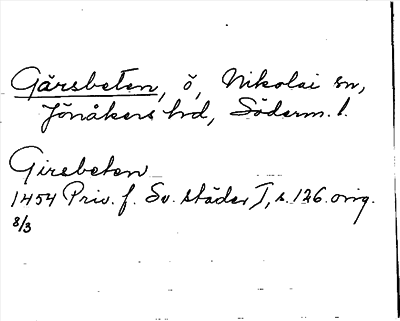 Gärsbeten, ö, Nikolai sn,
Jönåkers hd, Söderm. l.
Girsbeten
1454 Priv. f. Sv. städer I, s. 126. orig.
8/3